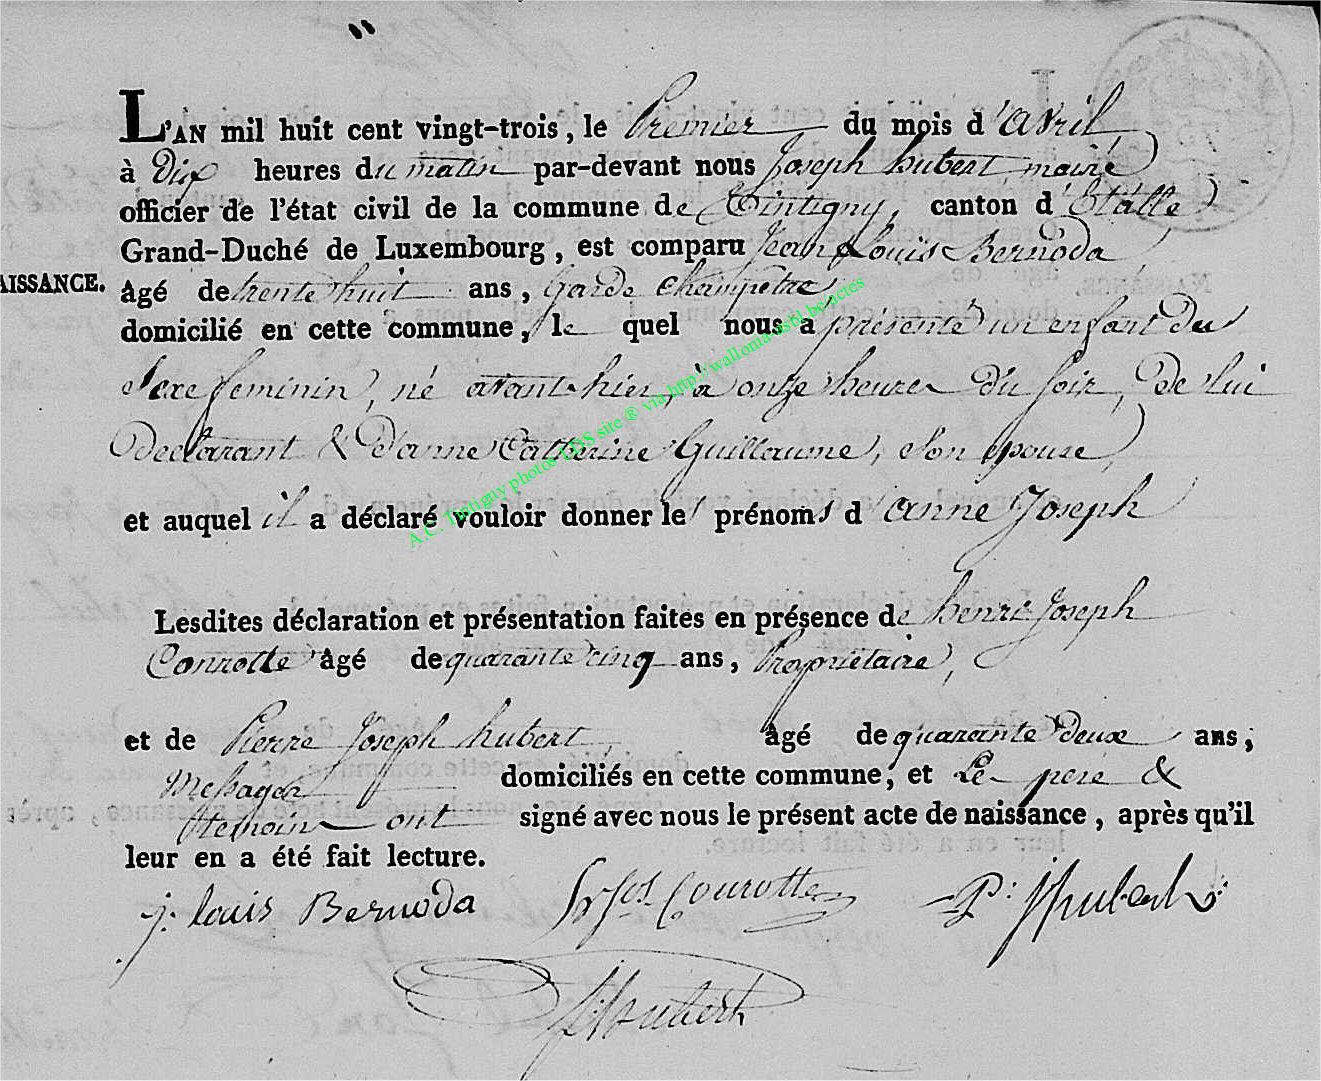 L'AN mil huit cent vingt-trois, le Premier du mois d'avril
à Dix heures du matin par-devant nous Joseph hubert maire
officier de l'état civil de la commune de Tintigny, canton d'Etalle
Grand-Duché de Luxembourg, est comparu Jean Louis Bernoda
AISSANCE. âgé de trente huit ans, garde Champetre
domicilié en cette commune, le quel nous a présenté un enfant du
Sexe feminin, né avant hier, à onze heures du soir, de lui
Declarant & d'anne Catherine Guillaume, son epouse,
et auquel il a déclaré vouloir donner les prénoms d'anne Joseph
A.C. Tintigny photos LDS site ® via http://wallonia.asbl.be/actes
Lesdites déclaration et présentation faites en présence de henri Joseph
Conrotte âgé de quarante cinq ans, Propriétaire,
et de Pierre Joseph hubert âgé de quarante Deux ans,
Messager domiciliés en cette commune, et Le pere &
temoins ont signé avec nous le présent acte de naissance, après qu'il
leur en a été fait lecture.
j. louis Bernoda Conrotte P. J hubert
J hubert